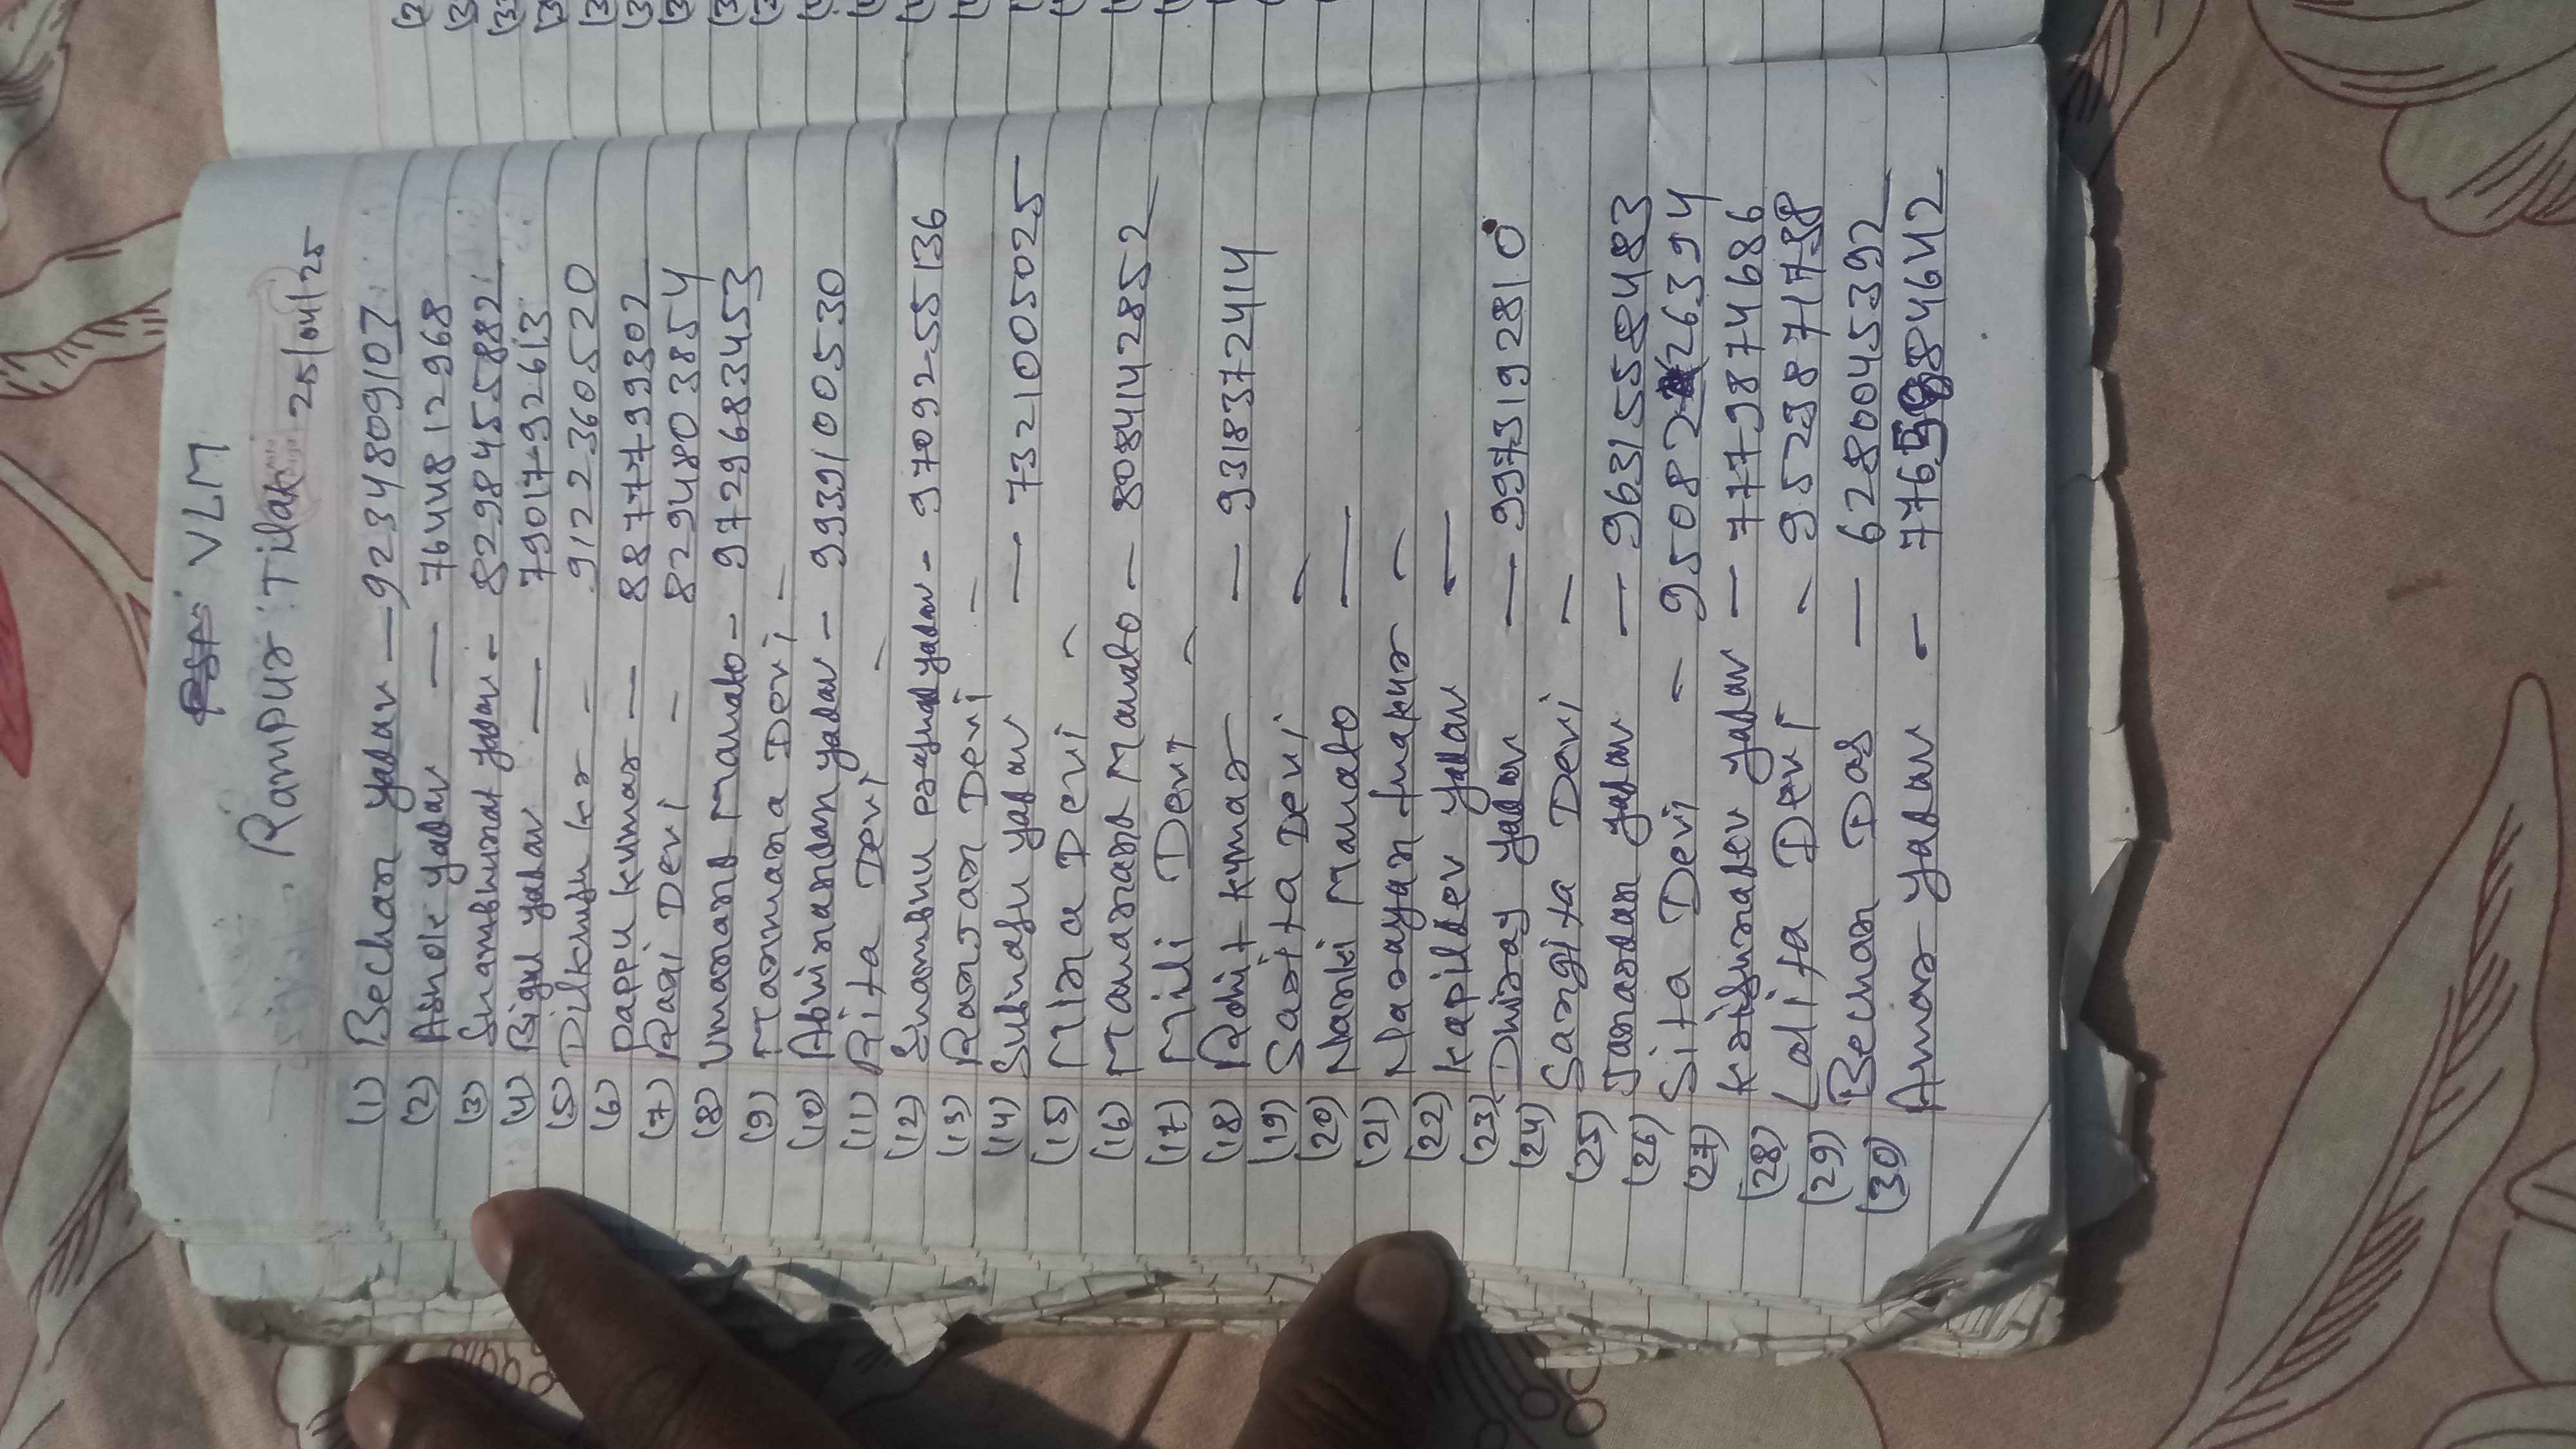 VLM
Rampur : Tilak 25/04/25
(1) Bechan yadav — 9234809107
(2) Ashok yadav — 7644812968
(3) Shambhunat yadav - 8298455882
(4) Bigul yadav — 7901792613
(5) Dilkhush kr - 9122360520
(6) Pappu kumar — 8877799302
(7) Ragi Devi - 8294803854
(8) Umanand Mahato - 9729683453
(9) Marmana Devi -
(10) Abhinandan yadav - 9939100530
(11) Rita Devi -
(12) Shambhu prayad yadav - 9709255136
(13) Ranjan Devi -
(14) Subhash yadav — 7321005025
(15) Mina Devi -
(16) Manarand Mahato — 8084142852
(17) Mili Devi -
(18) Rohit kumar — 9318372414
(19) Sarita Devi -
(20) Nanki Mahato —
(21) Narayan thakur -
(22) kapildev yadav —
(23) Dhiraj yadav — 9973192810
(24) Sangita Devi -
(25) Janardan yadav — 9631558483
(26) Sita Devi - 9508226394
(27) krishnadev yadav — 7779874686
(28) Lalita Devi - 9523871788
(29) Bechan Das — 6280045392
(30) Amar yadav - 7765884642